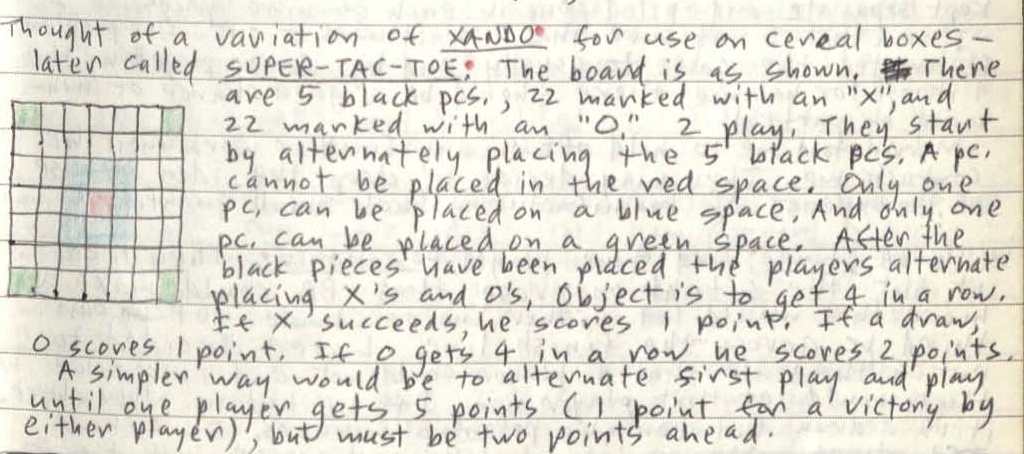 Thought of a variation of XANDO for use on cereal boxes -
later called SUPER-TAC-TOE. The board is as shown. There
are 5 black pcs., 22 marked with an "X", and
22 marked with an "O." 2 play. They start
by alternately placing the 5 black pcs. A pc.
cannot be placed in the red space. Only one
pc. can be placed on a blue space. And only one
pc. can be placed on a green space. After the
black pieces have been placed the players alternate
placing X's and O's. Object is to get 4 in a row.
If X succeeds he scores 1 point. If a draw,
O scores 1 point. If O gets 4 in a row he scores 2 points.
A simpler way would be to alternate first play and play
until one player gets 5 points (1 point for a victory by
either player), but must be two points ahead.